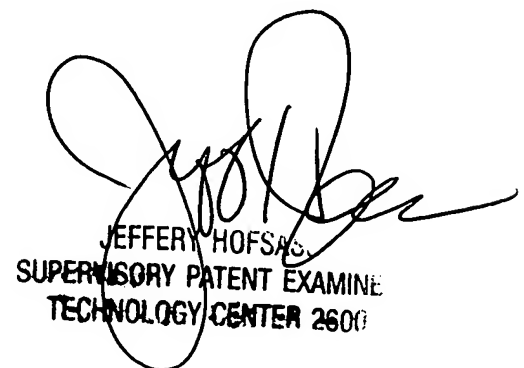 JEFFERY HOFSASS
SUPERVISORY PATENT EXAMINE
TECHNOLOGY CENTER 2600